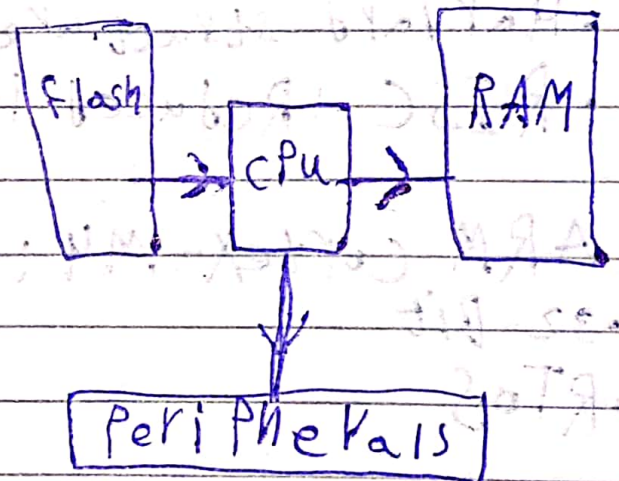 flash
CPU
RAM
Peripherals